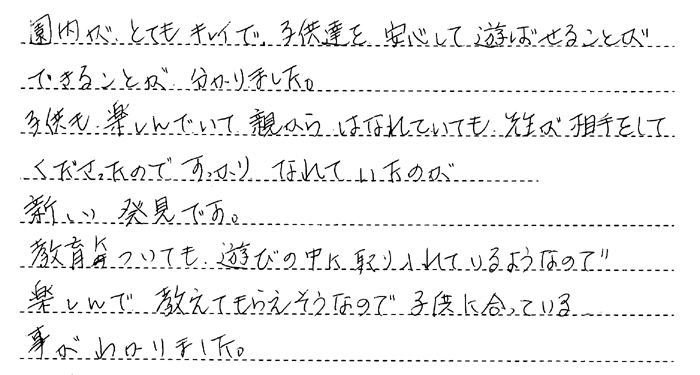 園内が、とてもキレイで、子供達を安心して遊ばせることが
できることが分かりました。
子供も楽しんでいて親からはなれていても、先生が相手をして
くださったのですっかりなれていたのが
新しい発見です。
教育についても、遊びの中に取り入れているようなので
楽しんで教えてもらえそうなので子供に合っている
事がわかりました。